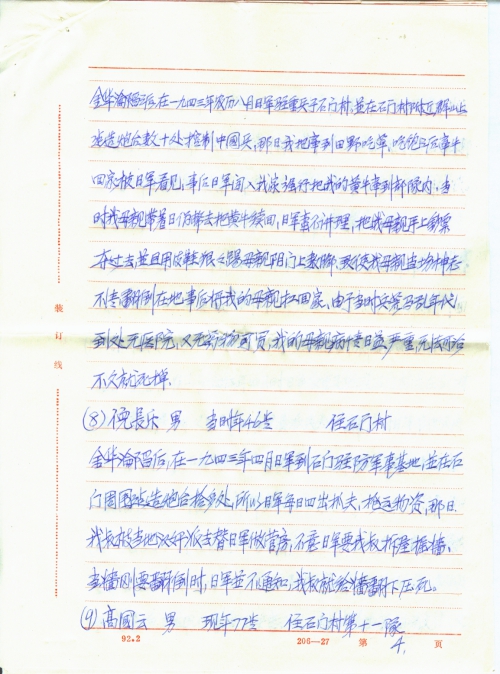 金华沦陷后,在一九四三年农历八月日军驻重兵于石门村,並在石门村附近群山上
改造炮台数十处控制中國兵,那日我把牛牵到田野吃草,吃饱以后牵牛
回家被日军看见,事后日军闯入我家强行把我的黄牛牵到部队内,当
时我母親带着日伪币去把黄牛赎回,日军蛮不讲理,把我母親耳上
夺过去,並且用皮鞋狠心踢母親阴门上数脚,致使我母親当场神志
不清翻倒在地事后将我的母親扛回家,由于当时兵荒马乱年代
到处无医院,又无药物可買,我的母親病情日益严重,无法医治
不久就死掉。
(8)倪長乐 男 当时年46岁 住石门村
金华沦陷后,在一九四三年四月日軍到石门驻防军事基地,並在石
门周围改造炮台拾多处,所以日軍每日四出抓夫,抢运物资,那日
我叔被当地汉奸派去替日軍做营房,不意日軍要我叔拆屋掘墙,
当墙刚要翻倒时,日軍並不通知,我叔就给墙翻下压死。
(9)髙國云 男 现年77岁 住石门村第十一队
装
订
线
92.2 206—27 第 4. 页